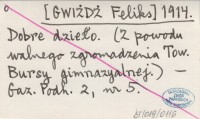 [GWIŻDŻ Feliks] 1914.
Dobre dzieło. (Z powodu
walnego zgromadzenia Tow.
Bursy gimnazyalnej.) —
Gaz. Podh. 2, nr 5.